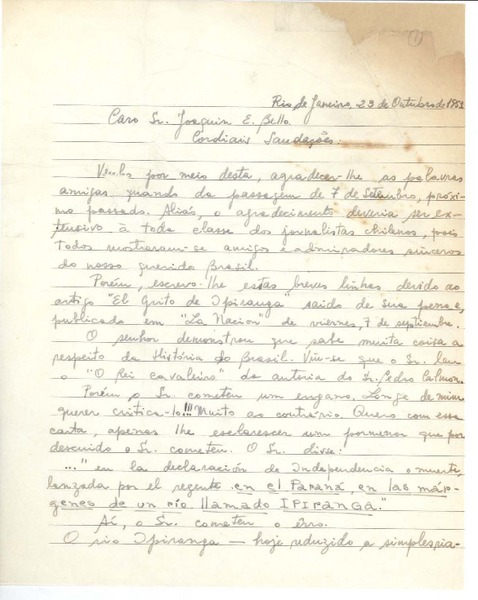 1
Rio de Janeiro, 23 de Outubro de 1951
Caro Sr. Joaquin E. Bello.
Cordiais Saudações:
Venho por meio desta, agradecer-lhe as palavras
amigas quando da passagem de 7 de Setembro, próxi-
mo passado. Aliás, o agradecimento deveria ser ex-
tensivo à toda classe dos jornalistas chilenos, pois
todos mostraram-se amigos e admiradores sinceros
do nosso querido Brasil.
Porém, escrevo-lhe estas breves linhas devido ao
artigo "El Grito de Ipiranga" saido de sua pena e,
publicado em "La Nacion" de viernes, 7 de septiembre.
O senhor demonstrou que sabe muita coisa a
respeito da História do Brasil. Viu-se que o Sr. leu
o "O Rei cavaleiro" da autoria do Sr. Pedro Calmon.
Porém o Sr. cometeu um engano. Longe de mim
querer critica-lo!!! Muito ao contrário. Quero com essa
carta, apenas lhe esclarescer um pormenor que por
descuido o Sr. cometeu. O Sr. disse:
..." en la declaración de Independencia o muerte,
lanzada por el regente en el Paraná, en las már-
genes de un río llamado IPIRANGA."
Aí, o Sr. cometeu o êrro.
O rio Ipiranga — hoje reduzido a simples ria-